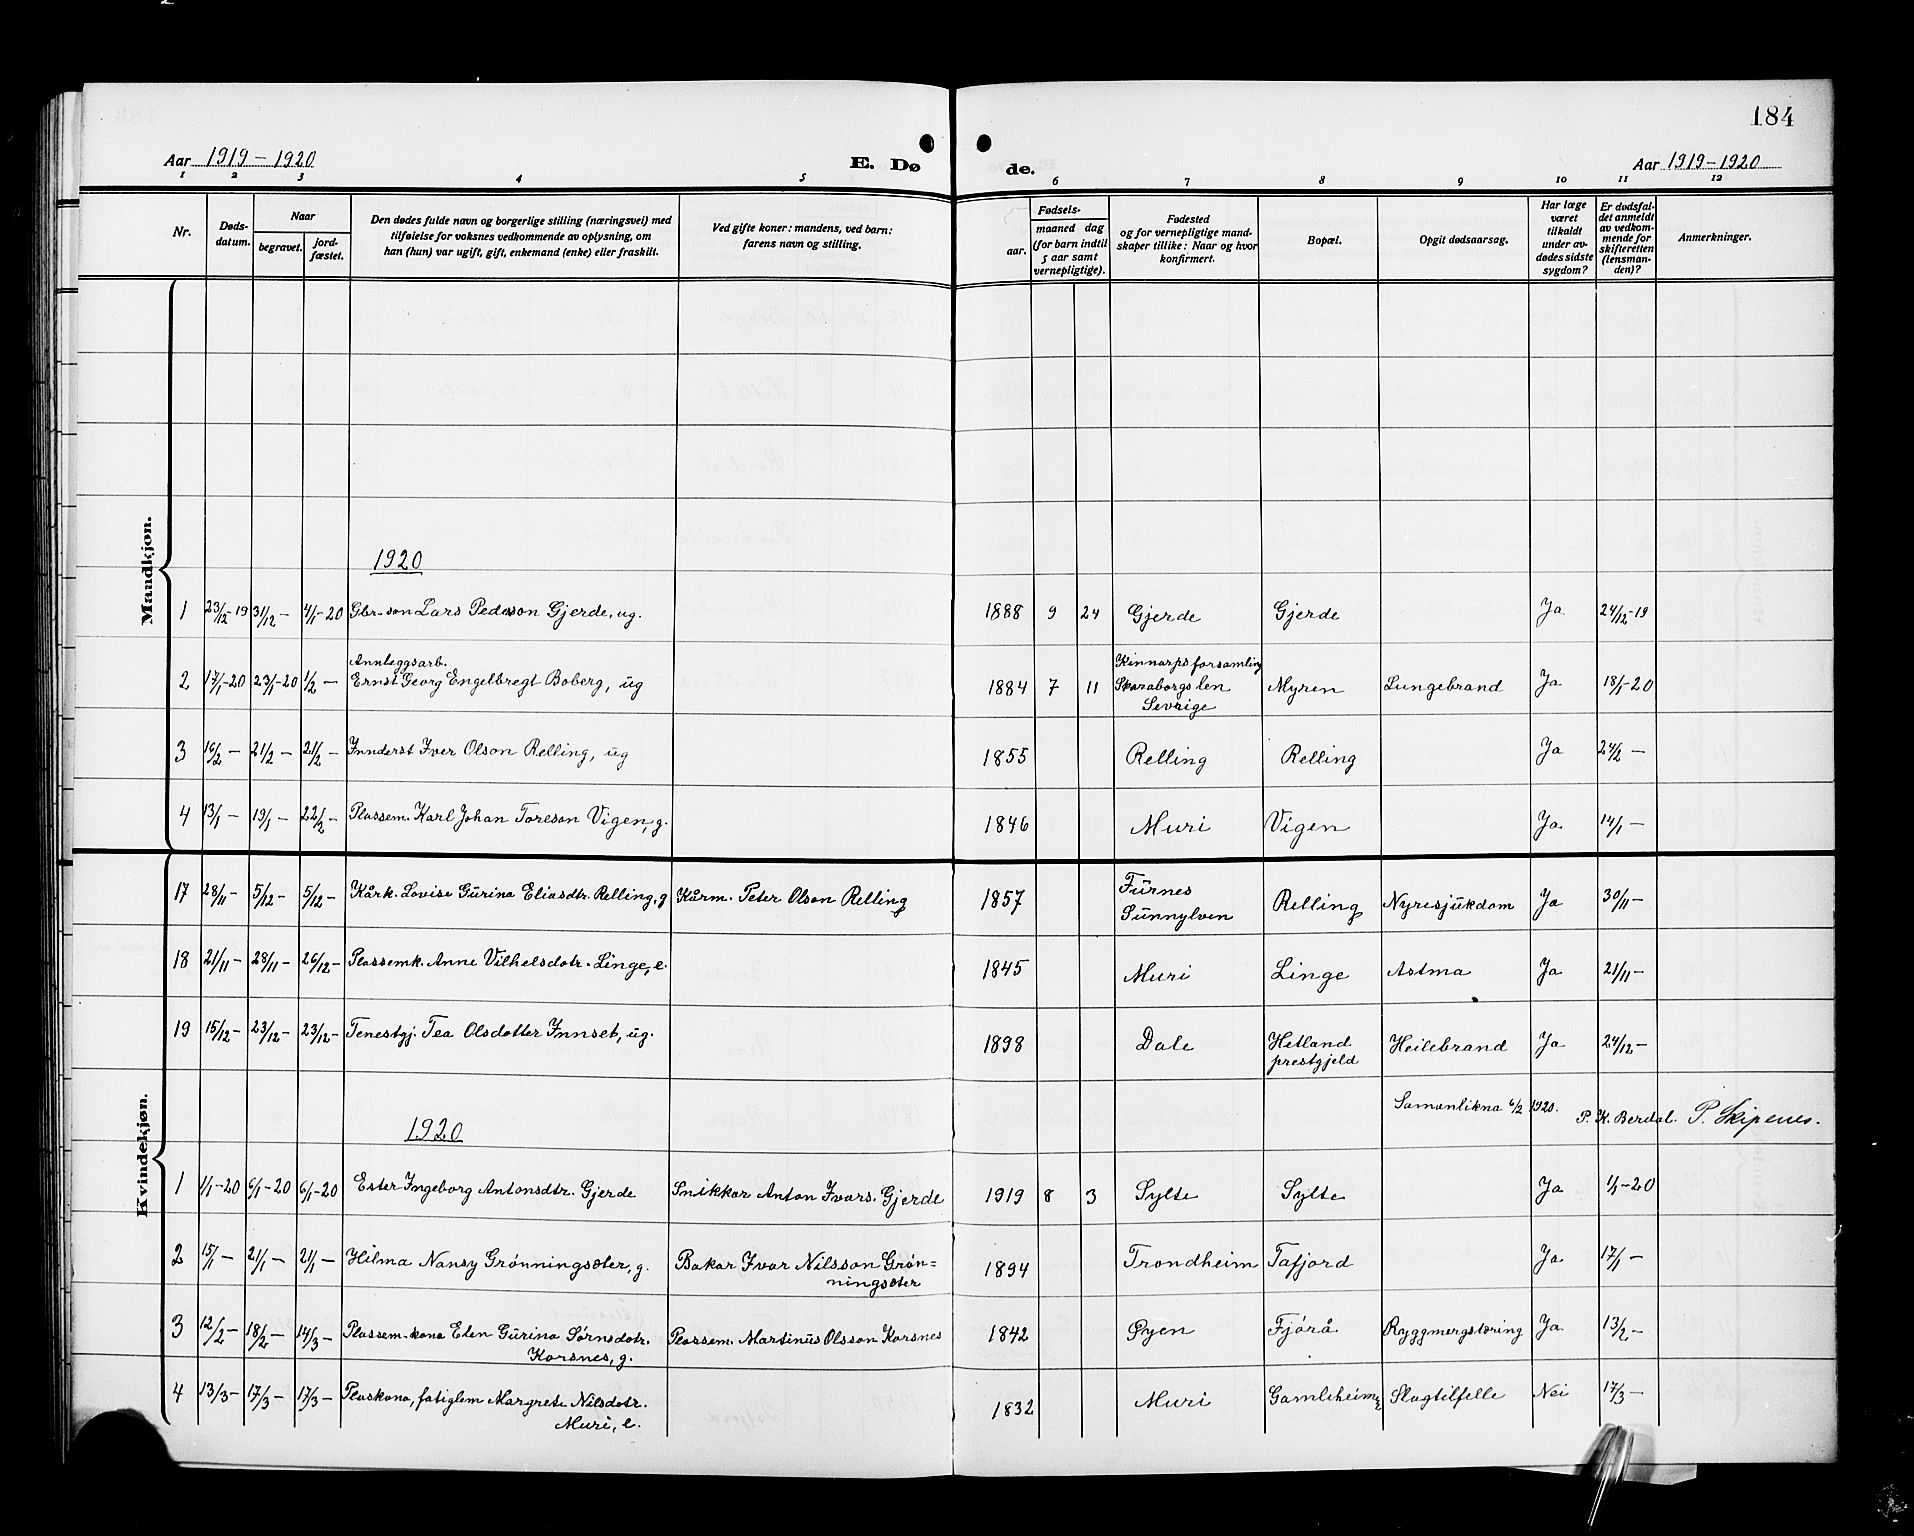 184
Aar 1919-1920 E. Døde. Aar 1919-1920
1 2 3 4 5 6 7 8 9 10 11 12
Nr.
Døds-
datum.
Naar
begravet.
jord-
fæstet.
Den dødes fulde navn og borgerlige stilling (næringsvei) med
tilføielse for voksnes vedkommende av oplysning, om
han (hun) var ugift, gift, enkemand (enke) eller fraskilt.
Ved gifte koner: mandens, ved barn:
farens navn og stilling.
Fødsels-
aar.
maaned dag
(for barn indtil
5 aar samt
vernepligtige).
Fødested
og for vernepligtige mand-
skaper tillike: Naar og hvor
konfirmert.
Bopæl.
Opgit dødsaarsag.
Har læge
været
tilkaldt
under av-
dødes sidste
sygdom?
Er dødsfal-
det anmeldt
av vedkom-
mende for
skifteretten
(lensman-
den)?
Anmerkninger.
Mandkjøn.
1920
1 23/12-19 31/12- 4/1-20 Gbr-son Lars Pederson Gjerde, ug. 1888 9 24 Gjerde Gjerde Ja 24/12-19
2 17/1-20 23/1-20 1/2- Annleggsarb.
Ernst Georg Engelbregt Boberg, ug 1884 7 11 Kinnarps forsamling
Skaraborgs len
Sevrige Myren Lungebrand Ja 18/1-20
3 16/2- 21/2- 21/2- Innderst Iver Olson Relling, ug 1855 Relling Relling Ja 24/2-
4 13/1- 19/1- 22/2- Plassem. Karl Johan Toreson Vigen, g. 1846 Muri Vigen Ja 14/1-
Kvindekjøn.
17 28/11- 5/12- 5/12- Kårk. Lovise Gurina Eliasdtr. Relling, g Kårm. Peter Olson Relling 1857 Furnes
Sunnylven Relling Nyresjukdom Ja 30/11-
18 21/11- 28/11- 26/12- Plassemk. Anne Vilhelsdotr. Linge, e. 1845 Muri Linge Astma Ja 21/11-
19 15/12- 23/12- 23/12- Tenestgj. Tea Olsdotter Innset, ug. 1898 Dale Hetland
prestgjeld Heilebrand Ja 24/12-
Samanlikna 6/2 1920.
P. K. Berdal. P. Skipenes.
1920
1 1/1-20 6/1-20 6/1-20 Ester Ingeborg Antonsdtr. Gjerde Snikkar Anton Ivars. Gjerde 1919 8 3 Sylte Sylte Ja 1/1-20
2 15/1- 21/1- 21/1- Hilma Nansy Grønningsæter, g. Bakar Ivar Nilsson Grøn=
ningsæter 1894 Trondheim Tafjord Ja 17/1-
3 12/2- 18/2- 14/3- Plassem.kona Elen Gurina Sørnsdotr.
Korsnes, g. Plassem. Martinus Olsson Korsnes 1842 Øyen Fjørå Ryggmergstæring Ja 13/2-
4 13/3- 17/3- 17/3- Plaskona, fatiglem Margrete Nilsdotr.
Muri, e. 1832 Muri Gamleheim Slagtilfelle Nei 17/3-